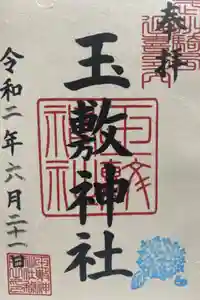 奉拝
玉敷神社
令和二年六月二十一日